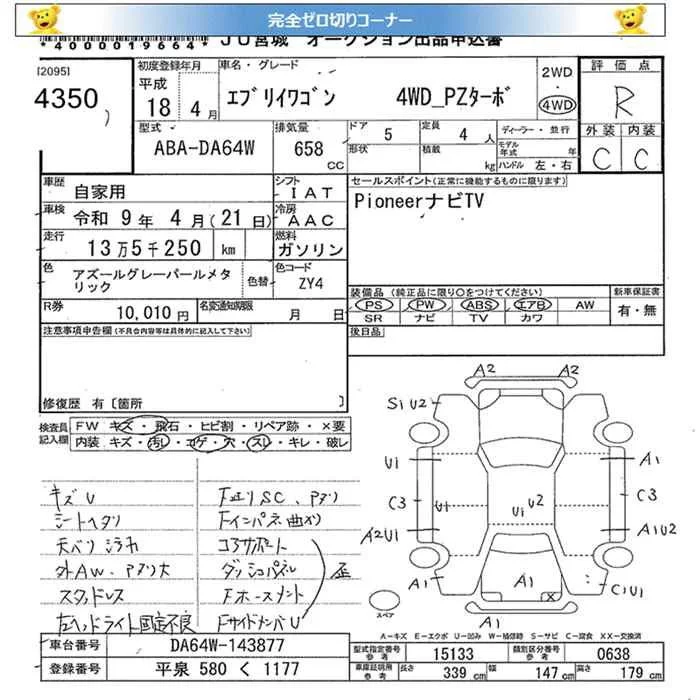 完全ゼロ切りコーナー
*4000019664* JU宮城 オークション出品申込書
[20951
4350
初度登録年月
平成
18年 4月
車名・グレード
エブリイワゴン 4WD_PZターボ
2WD
4WD
評価点
R
型式
ABA-DA64W
排気量
658
CC
ドア
5
形状
定員
4人
積載
kg
ディーラー・並行
モデル年式 年
ハンドル 左・右
外装 内装
C C
車歴
自家用
シフト
IAT
車検
令和 9年 4月(21日)
冷房
AAC
走行
13万5千250 km
燃料
ガソリン
色
アズールグレーパールメタリック
色替
色コード
ZY4
R券
10,010円
名変通知期限
月 日
セールスポイント(正常に機能するものに限ります)
PioneerナビTV
装備品 (純正品に限り○をつけてください)
PS PW ABS エアB AW
SR ナビ TV カワ
新車保証書
有・無
後日品
注意事項申告欄(不具合内容等は具体的に記入して下さい)
修復歴 有〔箇所 〕
検査員記入欄
FW キズ・飛石・ヒビ割・リペア跡・×要
内装 キズ・汚れ・コゲ・穴・スレ・キレ・破レ
キズU
シートヘタリ
天バリシミカ
外AW、アタリ大
スタッドレス
左ヘッドライト固定不良
F廻りSC、アタリ
Fインパネ曲り
コアサポート
ダッシュパネル
Fホースメント
FサイドメンバU
歪
A2 A2
SiU2
U1 A1
C3 U1 U1 U2 C3
A2U1 A1U2
A1 A1 C1U1
X
A1
スペア
A−キズ E−エクボ U−凹み W−補修跡 S−サビ C−腐食 XX−交換済
車台番号 DA64W-143877
登録番号 平泉 580 く 1177
型式指定番号 参考 15133
類別区分番号 参考 0638
車庫証明用 参考 長さ 339cm 幅 147cm 高さ 179cm